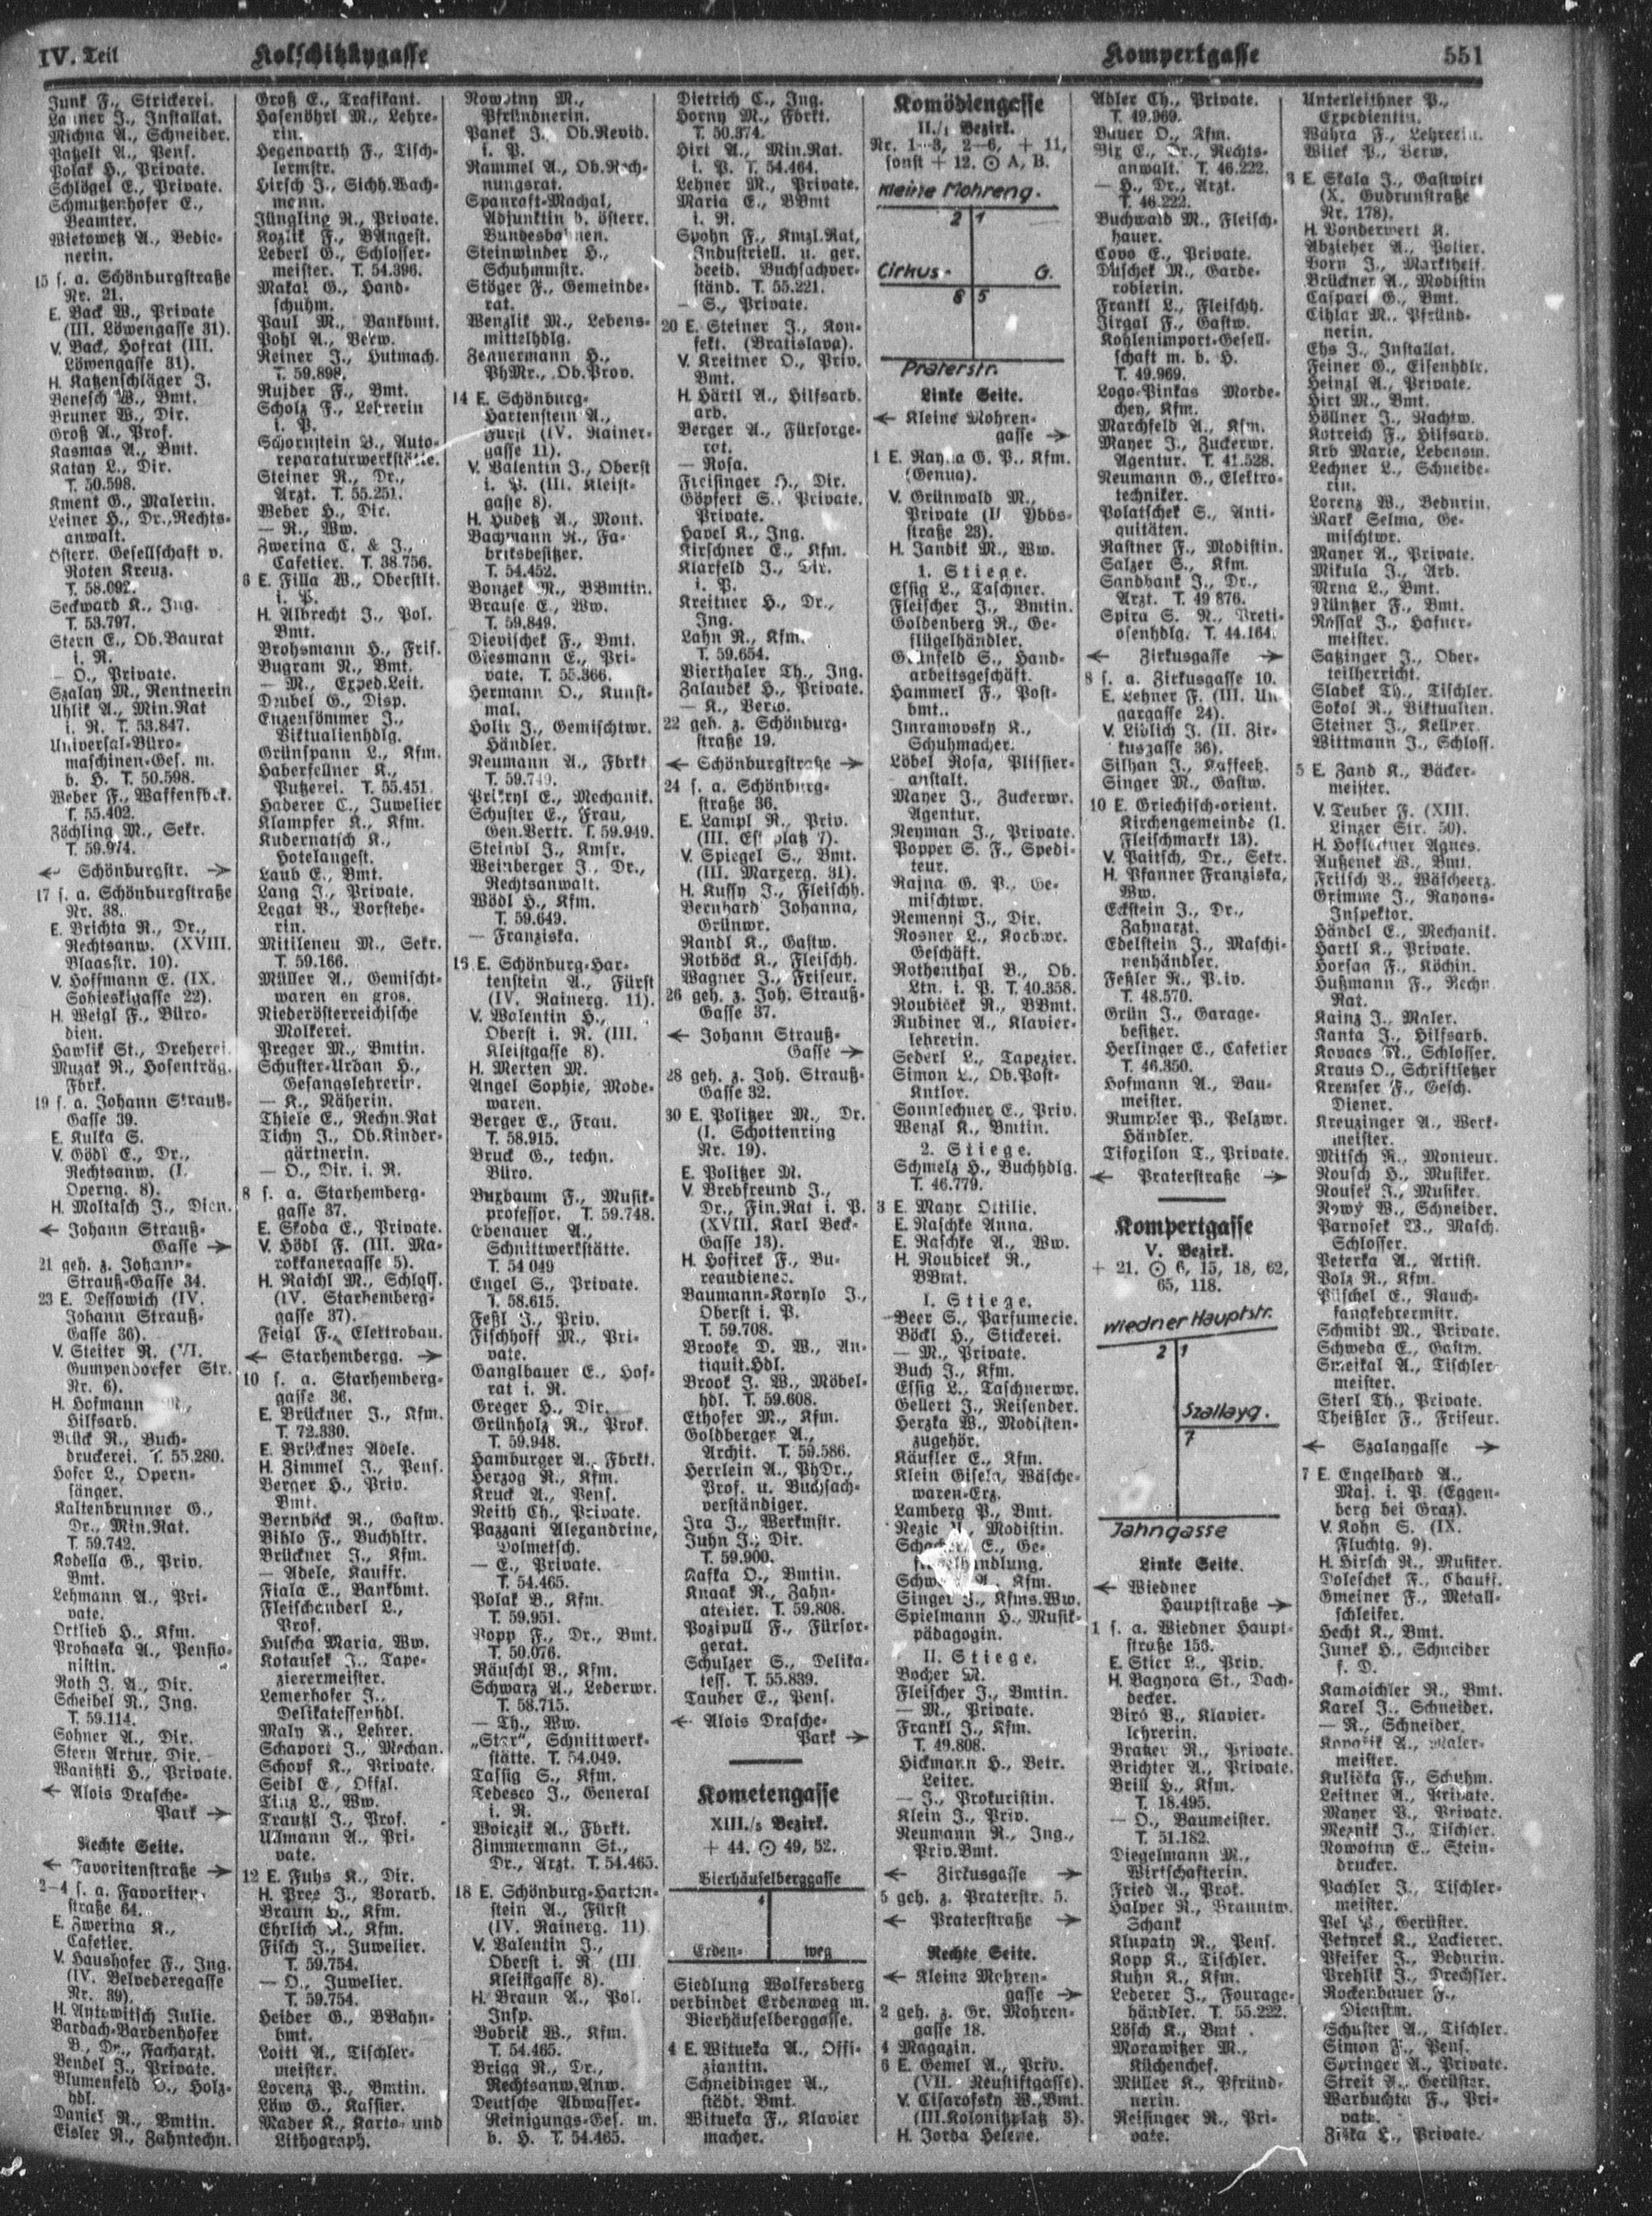 IV. Teil
Kolschitzkygasse
Kompertgasse
551
Junk F., Strickerei.
J., Installat.
Michna A., Schneider.
Patzelt A., Pens.
Polak H., Private.
Schlögel E., Private.
Schmutzenhofer E.,
Beamter.
Wietowetz A., Bedie-
nerin.
15 s. a. Schönburgstraße
Nr. 21.
E. Back W., Private
(III. Löwengasse 31).
V. Back, Hofrat (III.
Löwengasse 31).
H. Katzenschläger J.
Benesch W., Bmt.
Bruner W., Dir.
Groß A., Prof.
Kasmas A., Bmt.
Katay L., Dir.
T. 50.598.
Kment G., Malerin.
Leiner H., Dr., Rechts-
anwalt.
Österr. Gesellschaft v.
Roten Kreuz.
T. 58.092.
Seckward K., Ing.
T. 53.797.
Stern E., Ob.Baurat
i. R.
— O., Private.
Szalay M., Rentnerin
Uhlik A., Min.Rat
i. R. T. 53.847.
Universal-Büro-
maschinen-Ges. m.
b. H. T. 50.598.
Weber F., Waffenfbrk.
T. 55.402.
Zöchling M., Sekr.
T. 59.974.
← Schönburgstr. →
17 s. a. Schönburgstraße
Nr. 38.
E. Brichta R., Dr.,
Rechtsanw. (XVIII.
Blaasstr. 10).
V. Hoffmann E. (IX.
Sobieskigasse 22).
H. Weigl F., Büro-
dien.
Hawlik St., Dreherei.
Muzak R., Hosenträg.
Fbrk.
19 s. a. Johann Strauß-
Gasse 39.
E. Kulka S.
V. Gödl E., Dr.,
Rechtsanw. (I.
Operng. 8).
H. Moltasch J., Dien.
← Johann Strauß-
Gasse →
21 geh. z. Johann-
Strauß-Gasse 34.
23 E. Dessowich (IV.
Johann Strauß-
Gasse 36).
V. Steiter R. (VI.
Gumpendorfer Str.
Nr. 6).
H. Hofmann
Hilfsarb.
Blück R., Buch-
druckerei. T. 55.280.
Hofer L., Opern-
sänger.
Kaltenbrunner G.,
Dr., Min.Rat.
T. 59.742.
Kobella G., Priv.
Bmt.
Lehmann A., Pri-
vate.
Ortlieb H., Kfm.
Prohaska A., Pensio-
nistin.
Roth J. A., Dir.
Scheibel R., Ing.
T. 59.114.
Sohner A., Dir.
Stern Artur, Dir.
Wanitzki H., Private.
← Alois Drasche-
Park →
Rechte Seite.
← Favoritenstraße →
2-4 s. a. Favoriten-
straße 64.
E. Zwerina K.,
Cafetier.
V. Haushofer F., Ing.
(IV. Belvederegasse
Nr. 39).
H. Antowitsch Julie.
Bardach-Bardenhofer
B., Dr., Facharzt.
Bendel J., Private.
Blumenfeld O., Holz-
hdl.
Daniel R., Bmtin.
Eisler R., Zahntechn.
Groß E., Trafikant.
Hasenöhrl M., Lehre-
rin.
Hegenbarth F., Tisch-
lermstr.
Hirsch J., Sichh.Wach-
mann.
Jüngling R., Private.
Kozlik F., BAngest.
Leberl G., Schlosser-
meister. T. 54.396.
Makal G., Hand-
schuhm.
Paul M., Bankbmt.
Pohl A., Verw.
Reiner J., Hutmach.
T. 59.898.
Rujder F., Bmt.
Scholz F., Lehrerin
i. P.
Schornstein B., Auto-
reparaturwerkstätte.
Steiner R., Dr.,
Arzt. T. 55.251.
Weber H., Dir.
— R., Ww.
Zwerina C. & J.,
Cafetier. T. 38.756.
6 E. Filla W., Oberstlt.
i. P.
H. Albrecht J., Pol.
Bmt.
Brohsmann H., Fris.
Bugram R., Bmt.
— M., Exped.Leit.
Drubel G., Disp.
Enzensömmer J.,
Viktualienhdlg.
Grünspann L., Kfm.
Haberfellner K.,
Putzerei. T. 55.451.
Haderer C., Juwelier
Klampfer K., Kfm.
Kudernatsch K.,
Hotelangest.
Laub E., Bmt.
Lang J., Private.
Legat B., Vorstehe-
rin.
Mitileneu M., Sekr.
T. 59.166.
Müller A., Gemischt-
waren en gros.
Niederösterreichische
Molkerei.
Preger M., Bmtin.
Schuster-Urban H.,
Gesangslehrerin.
— K., Näherin.
Thiele E., Rechn.Rat
Tichy J., Ob.Kinder-
gärtnerin.
— O., Dir. i. R.
8 s. a. Starhemberg-
gasse 37.
E. Skoda E., Private.
V. Hödl F. (III. Ma-
rokkanergasse 5).
H. Raichl M., Schloss.
(IV. Starhemberg-
gasse 37).
Feigl F., Elektrobau.
← Starhembergg. →
10 s. a. Starhemberg-
gasse 36.
E. Brückner J., Kfm.
T. 72.330.
E. Brückner Adele.
H. Zimmel J., Pens.
Berger H., Priv.
Bmt.
Bernböck R., Gastw.
Biblo F., Buchhltr.
Brückner J., Kfm.
— Adele, Kauffr.
Fiala E., Bankbmt.
Fleischanderl L.,
Prof.
Huscha Maria, Ww.
Kotausek J., Tape-
zierermeister.
Lemerhofer J.,
Delikatessenhdl.
Maly K., Lehrer.
Schaport J., Mechan.
Schopf K., Private.
Seidl E., Offzl.
Tinz L., Ww.
Traußl J., Prof.
Ullmann A., Pri-
vate.
12 E. Fuhs K., Dir.
H. Pree J., Vorarb.
Braun H., Kfm.
Ehrlich R., Kfm.
Fisch J., Juwelier.
T. 59.754.
— O., Juwelier.
T. 59.754.
Heider G., BBahn-
bmt.
Loitl A., Tischler-
meister.
Lorenz P., Bmtin.
Löw G., Kassier.
Mader K., Karto- und
Lithograph.
Nowotny M.,
Pfründnerin.
Panek J., Ob.Revid.
i. P.
Rammel A., Ob.Rech-
nungsrat.
Spanraft-Machal,
Adjunktin d. österr.
Bundesbahnen.
Steinwinder H.,
Schuhmmstr.
Stöger F., Gemeinde-
rat.
Wenzlik M., Lebens-
mittelhdlg.
H.,
PhMr., Ob.Prov.
14 E. Schönburg-
Hartenstein A.,
Fürst (IV. Rainer-
gasse 11).
V. Valentin J., Oberst
i. P. (III. Kleist-
gasse 8).
H. Hudetz A., Mont.
Bachmann R., Fa-
briksbesitzer.
T. 54.452.
Bonzek M., BBmtin.
Brause E., Ww.
T. 59.849.
Dievischek F., Bmt.
Giesmann E., Pri-
vate. T. 55.366.
Hermann O., Kunst-
mal.
Holir J., Gemischtwr.
Händler.
Neumann A., Fbrkt.
T. 59.749.
Prikryl E., Mechanik.
Schuster E., Frau,
Gen.Vertr. T. 59.949.
Steindl J., Kmsr.
Weinberger J., Dr.,
Rechtsanwalt.
Wödl H., Kfm.
T. 59.649.
— Franziska.
E. Schönburg-Har-
tenstein A., Fürst
(IV. Rainerg. 11).
V. Valentin H.,
Oberst i. R. (III.
Kleistgasse 8).
H. Merten M.
Angel Sophie, Mode-
waren.
Berger E., Frau.
T. 58.915.
Bruck G., techn.
Büro.
Buxbaum F., Musik-
professor. T. 59.748.
Ebenauer A.,
Schnittwerkstätte.
T. 54 049
Engel S., Private.
T. 58.615.
Feßl J., Priv.
Fischhoff M., Pri-
vate.
Ganglbauer E., Hof-
rat i. R.
Greger H., Dir.
Grünholz R., Prok.
T. 59.948.
Hamburger A., Fbrkt.
Herzog R., Kfm.
Kruck A., Pens.
Reith Ch., Private.
Pazzani Alexandrine,
Dolmetsch.
— E., Private.
T. 54.465.
Polak B., Kfm.
T. 59.951.
Popp F., Dr., Bmt.
T. 50.076.
Räuschl B., Kfm.
Schwarz A., Lederwr.
T. 58.715.
— Th., Ww.
„Star“, Schnittwerk-
stätte. T. 54.049.
Tassig S., Kfm.
Tedesco J., General
i. R.
Wojezik A., Fbrkt.
Zimmermann St.,
Dr., Arzt. T. 54.465.
18 E. Schönburg-Harten-
stein A., Fürst
(IV. Rainerg. 11)
V. Valentin J.,
Oberst i. R. (III.
Kleistgasse 8).
H. Braun A., Pol.
Insp.
Bobrik W., Kfm.
T. 54.465.
Brigg R., Dr.,
Rechtsanw.Anw.
Deutsche Abwasser-
Reinigungs-Ges. m.
b. H. T. 54.465.
Dietrich C., Ing.
Horny M., Fbrkt.
T. 50.374.
Hirt A., Min.Rat.
i. P. T. 54.464.
Lehner M., Private.
Maria E., BBmt
i. R.
Spohn F., Kmzl.Rat,
Industriell. u. ger.
beeid. Buchsachver-
ständ. T. 55.221.
— S., Private.
20 E. Steiner J., Kon-
fekt. (Bratislava).
V. Kreitner O., Priv.
Bmt.
H. Härtl A., Hilfsarb.
arb.
Berger A., Fürsorge-
rat.
— Rosa.
Freisinger H., Dir.
Göpfert S., Private.
Private.
Havel K., Ing.
Kirschner E., Kfm.
Klarfeld J., Dir.
i. P.
Kreitner H., Dr.,
Ing.
Lahn R., Kfm.
T. 59.654.
Vierthaler Th., Ing.
Zalaudek H., Private.
— K., Verw.
22 geh. z. Schönburg-
straße 19.
← Schönburgstraße →
24 s. a. Schönburg-
straße 36.
E. Lampl R., Priv.
(III. platz 7).
V. Spiegel S., Bmt.
(III. Marxerg. 31).
H. Kussy J., Fleischh.
Bernhard Johanna,
Grünwr.
Randl K., Gastw.
Rotböck K., Fleischh.
Wagner J., Friseur.
26 geh. z. Joh. Strauß-
Gasse 37.
← Johann Strauß-
Gasse →
28 geh. z. Joh. Strauß-
Gasse 32.
30 E. Politzer M., Dr.
(I. Schottenring
Nr. 19).
E. Politzer M.
V. Brebfreund J.,
Dr., Fin.Rat i. P.
(XVIII. Karl Beck-
Gasse 13).
H. Hofirek F., Bu-
reaudiener.
Baumann-Korylo J.,
Oberst i. P.
T. 59.708.
Brooke D. W., An-
tiquit.Hdl.
Brook J. W., Möbel-
hdl. T. 59.608.
Ethofer M., Kfm.
Goldberger A.,
Archit. T. 59.586.
Herrlein A., PhDr.,
Prof. u. Buchsach-
verständiger.
Jra J., Werkmstr.
Juhn J., Dir.
T. 59.900.
Kafka O., Bmtin.
Knaak R., Zahn-
atelier. T. 59.808.
Pozipull F., Fürsor-
gerat.
Schulzer S., Delika-
tess. T. 55.839.
Tauber E., Pens.
← Alois Drasche-
Park →
Kometengasse
XIII./5 Bezirk.
+ 44. ⊙ 49, 52.
Bierhäuselberggasse
Erden- weg
Siedlung Wolfersberg
verbindet Erdenweg m.
Bierhäuselberggasse.
4 E. Witueka A., Offi-
ziantin.
Schneidinger A.,
städt. Bmt.
Witueka F., Klavier
macher.
Komödiengasse
II./1 Bezirk.
Nr. 1—3, 2—6, + 11,
sonst + 12. ⊙ A, B.
Kleine Mohreng.
2 1
Cirkus- G.
8 5
Praterstr.
Linke Seite.
← Kleine Mohren-
gasse →
1 E. G. P., Kfm.
(Genua).
V. Grünwald M.,
Private (II Ybbs-
straße 23).
H. Jandik M., Ww.
1. Stiege.
Essig L., Taschner.
Fleischer J., Bmtin.
Goldenberg R., Ge-
flügelhändler.
Grünfeld S., Hand-
arbeitsgeschäft.
Hammerl F., Post-
bmt..
Imramovsky K.,
Schuhmacher.
Löbel Rosa, Plissier-
anstalt.
Mayer J., Zuckerwr.
Agentur.
Neyman J., Private.
Popper S. F., Spedi-
teur.
Rajna G. P., Ge-
mischtwr.
Remenyi J., Dir.
Rosner L., Korbwr.
Geschäft.
Rothenthal B., Ob.
Ltn. i. P. T. 40.358.
Roubicek R., BBmt.
Rubiner A., Klavier-
lehrerin.
Sederl L., Tapezier.
Simon L., Ob.Post-
Kntlor.
Sonnlechner E., Priv.
Wenzl K., Bmtin.
2. Stiege.
Schmelz H., Buchhdlg.
T. 46.779.
3 E. Mayr Ottilie.
E. Raschke Anna.
E. Raschke A., Ww.
H. Roubicek R.,
BBmt.
I. Stiege.
Beer S., Parfumerie.
Böckl H., Stickerei.
— M., Private.
Buch J., Kfm.
Essig L., Taschnerwr.
Gellert J., Reisender.
Herzka W., Modisten-
zugehör.
Käufler E., Kfm.
Klein Gisela, Wäsche-
waren-Erz.
Lamberg P., Bmt.
Nezic Modistin.
E., Ge-
Kfm.
Singer J., Kfms.Ww.
Spielmann H., Musik-
pädagogin.
II. Stiege.
Bocher M.
Fleischer J., Bmtin.
— M., Private.
Frankl J., Kfm.
T. 49.808.
Hickmann H., Betr.
Leiter.
— J., Prokuristin.
Klein J., Priv.
Neumann R., Ing.,
Priv.Bmt.
← Zirkusgasse →
5 geh. z. Praterstr. 5.
← Praterstraße →
Rechte Seite.
← Kleine Mohren-
gasse →
2 geh. z. Gr. Mohren-
gasse 18.
4 Magazin.
6 E. Gemel A., Priv.
(VII. Neustiftgasse).
V. Cisarofsky W., Bmt.
(III. Kolonitzplatz 3).
H. Jorda Helene.
Adler Ch., Private.
T. 49.969.
Bauer O., Kfm.
Bix E., Dr., Rechts-
anwalt. T. 46.222.
— H., Dr., Arzt.
T. 46.222.
Buchwald M., Fleisch-
hauer.
Covo E., Private.
Duschek M., Garde-
robierin.
Frankl L., Fleischh.
Jirgal F., Gastw.
Kohlenimport-Gesell-
schaft m. b. H.
T. 49.969.
Logo-Pinkas Morde-
chey, Kfm.
Marchfeld A., Kfm.
Mayer J., Zuckerwr.
Agentur. T. 41.528.
Neumann G., Elektro-
techniker.
Polatschek S., Anti-
quitäten.
Rastner F., Modistin.
Salzer S., Kfm.
Sandbank J., Dr.,
Arzt. T. 49 876.
Spira S. R., Preti-
osenhdlg. T. 44.164.
← Zirkusgasse →
8 s. a. Zirkusgasse 10.
E. Lehner F. (III. Un
gargasse 24).
V. Liblich J. (II. Zir-
kusgasse 36).
Silhan J., Kaffeeh.
Singer M., Gastw.
10 E. Griechisch-orient.
Kirchengemeinde (I.
Fleischmarkt 13).
V. Paitsch, Dr., Sekr.
H. Pfanner Franziska,
Ww.
Eckstein J., Dr.,
Zahnarzt.
Edelstein J., Maschi-
nenhändler.
Feßler R., Priv.
T. 48.570.
Grün J., Garage-
besitzer.
Herlinger E., Cafetier
T. 46.350.
Hofmann A., Bau-
meister.
Rumpler P., Pelzwr.
Händler.
Tiforilon T., Private.
← Praterstraße →
Kompertgasse
V. Bezirk.
+ 21. ⊙ 6, 15, 18, 62,
65, 118.
Wiedner Hauptstr.
2 1
Szallayg.
7
Jahngasse
Linke Seite.
← Wiedner
Hauptstraße →
1 s. a. Wiedner Haupt-
straße 153.
E. Stier L., Priv.
H. Bagyora St., Dach-
decker.
Biró B., Klavier-
lehrerin.
Bratzer R., Private.
Brichter A., Private.
Brill H., Kfm.
T. 18.495.
— O., Baumeister.
T. 51.182.
Diegelmann M.,
Wirtschafterin.
Fried A., Prok.
Halper R., Branntw.
Schank
Klupaty R., Pens.
Kopp K., Tischler.
Kuhn K., Kfm.
Lederer J., Fourage-
händler. T. 55.222.
Lösch K., Bmt.
Morawitzer M.,
Küchenchef.
Müller K., Pfründ-
nerin.
Reisinger R., Pri-
vate.
Unterleithner P.,
Expedientin.
Wahra F., Lehrerin.
Wilek P., Verw.
3 E. Skala J., Gastwirt
(X. Gudrunstraße
Nr. 178).
H. Vonderwert K.
Abzieher A., Polier.
Born J., Markthelf.
Brückner A., Modistin
Caspari G., Bmt.
Cihlar M., Pfründ-
nerin.
Ehs J., Installat.
Feiner G., Eisenhdlr.
Heinzl A., Private.
Hirt M., Bmt.
Höllner J., Nachtw.
Kotreich F., Hilfsarb.
Krb Marie, Lebensm.
Lechner L., Schneide-
rin.
Lorenz W., Bednrin.
Mark Selma, Ge-
mischtwr.
Mayer A., Private.
Mikula J., Arb.
Mrna L., Bmt.
Müntzer F., Bmt.
Nossak J., Hafner-
meister.
Satzinger J., Ober-
teilherricht.
Sladek Th., Tischler.
Sokol R., Viktualien.
Steiner J., Kellner.
Wittmann J., Schloss.
5 E. Zand K., Bäcker-
meister.
V. Teuber F. (XIII.
Linzer Str. 50).
H. Hoflechner Agnes.
Außenek W., Bmt.
Fritsch B., Wäscheerz.
Grimme J., Rayons-
Inspektor.
Händel E., Mechanik.
Hartl K., Private.
Horsag F., Köchin.
Hußmann F., Rechn
Rat.
Kainz J., Maler.
Kanta J., Hilfsarb.
Kovacs R., Schlosser.
Kraus O., Schriftsetzer
Kremser F., Gesch.
Diener.
Kreuzinger A., Werk-
meister.
Mitsch R., Monteur.
Nousch H., Musiker.
Nousek J., Musiker.
Nowy W., Schneider.
Parnosek W., Masch.
Schlosser.
Peterka A., Artist.
Polz R., Kfm.
Püschel E., Rauch-
fangkehrermstr.
Schmidt M., Private.
Schweda E., Gastw.
Smeikal A., Tischler
meister.
Sterl Th., Private.
Theißler F., Friseur.
← Szalaygasse →
7 E. Engelhard A.,
Maj. i. P. (Eggen-
berg bei Graz).
V. Kohn S. (IX.
Fluchtg. 9).
H. Hirsch R., Musiker.
Doleschek F., Chauff.
Gmeiner F., Metall-
schleifer.
Hecht K., Bmt.
Junek H., Schneider
f. D.
Kamoichler R., Bmt.
Karel J., Schneider.
— R., Schneider.
A., Maler-
meister.
Kulicka F., Schuhm.
Leitner A., Private.
Mayer B., Private.
Meznik J., Tischler.
Nowotny E., Stein-
drucker.
Pachler J., Tischler-
meister.
Pel P., Gerüster.
Petyrek K., Lackierer.
Pfeifer J., Bednrin.
Prehlik J., Drechsler.
Rockenbauer F.,
Dienstm.
Schuster A., Tischler.
Simon F., Pens.
Springer A., Private.
Streit A., Gerüster.
Warbuchta F., Pri-
vate.
Ziska L., Private.